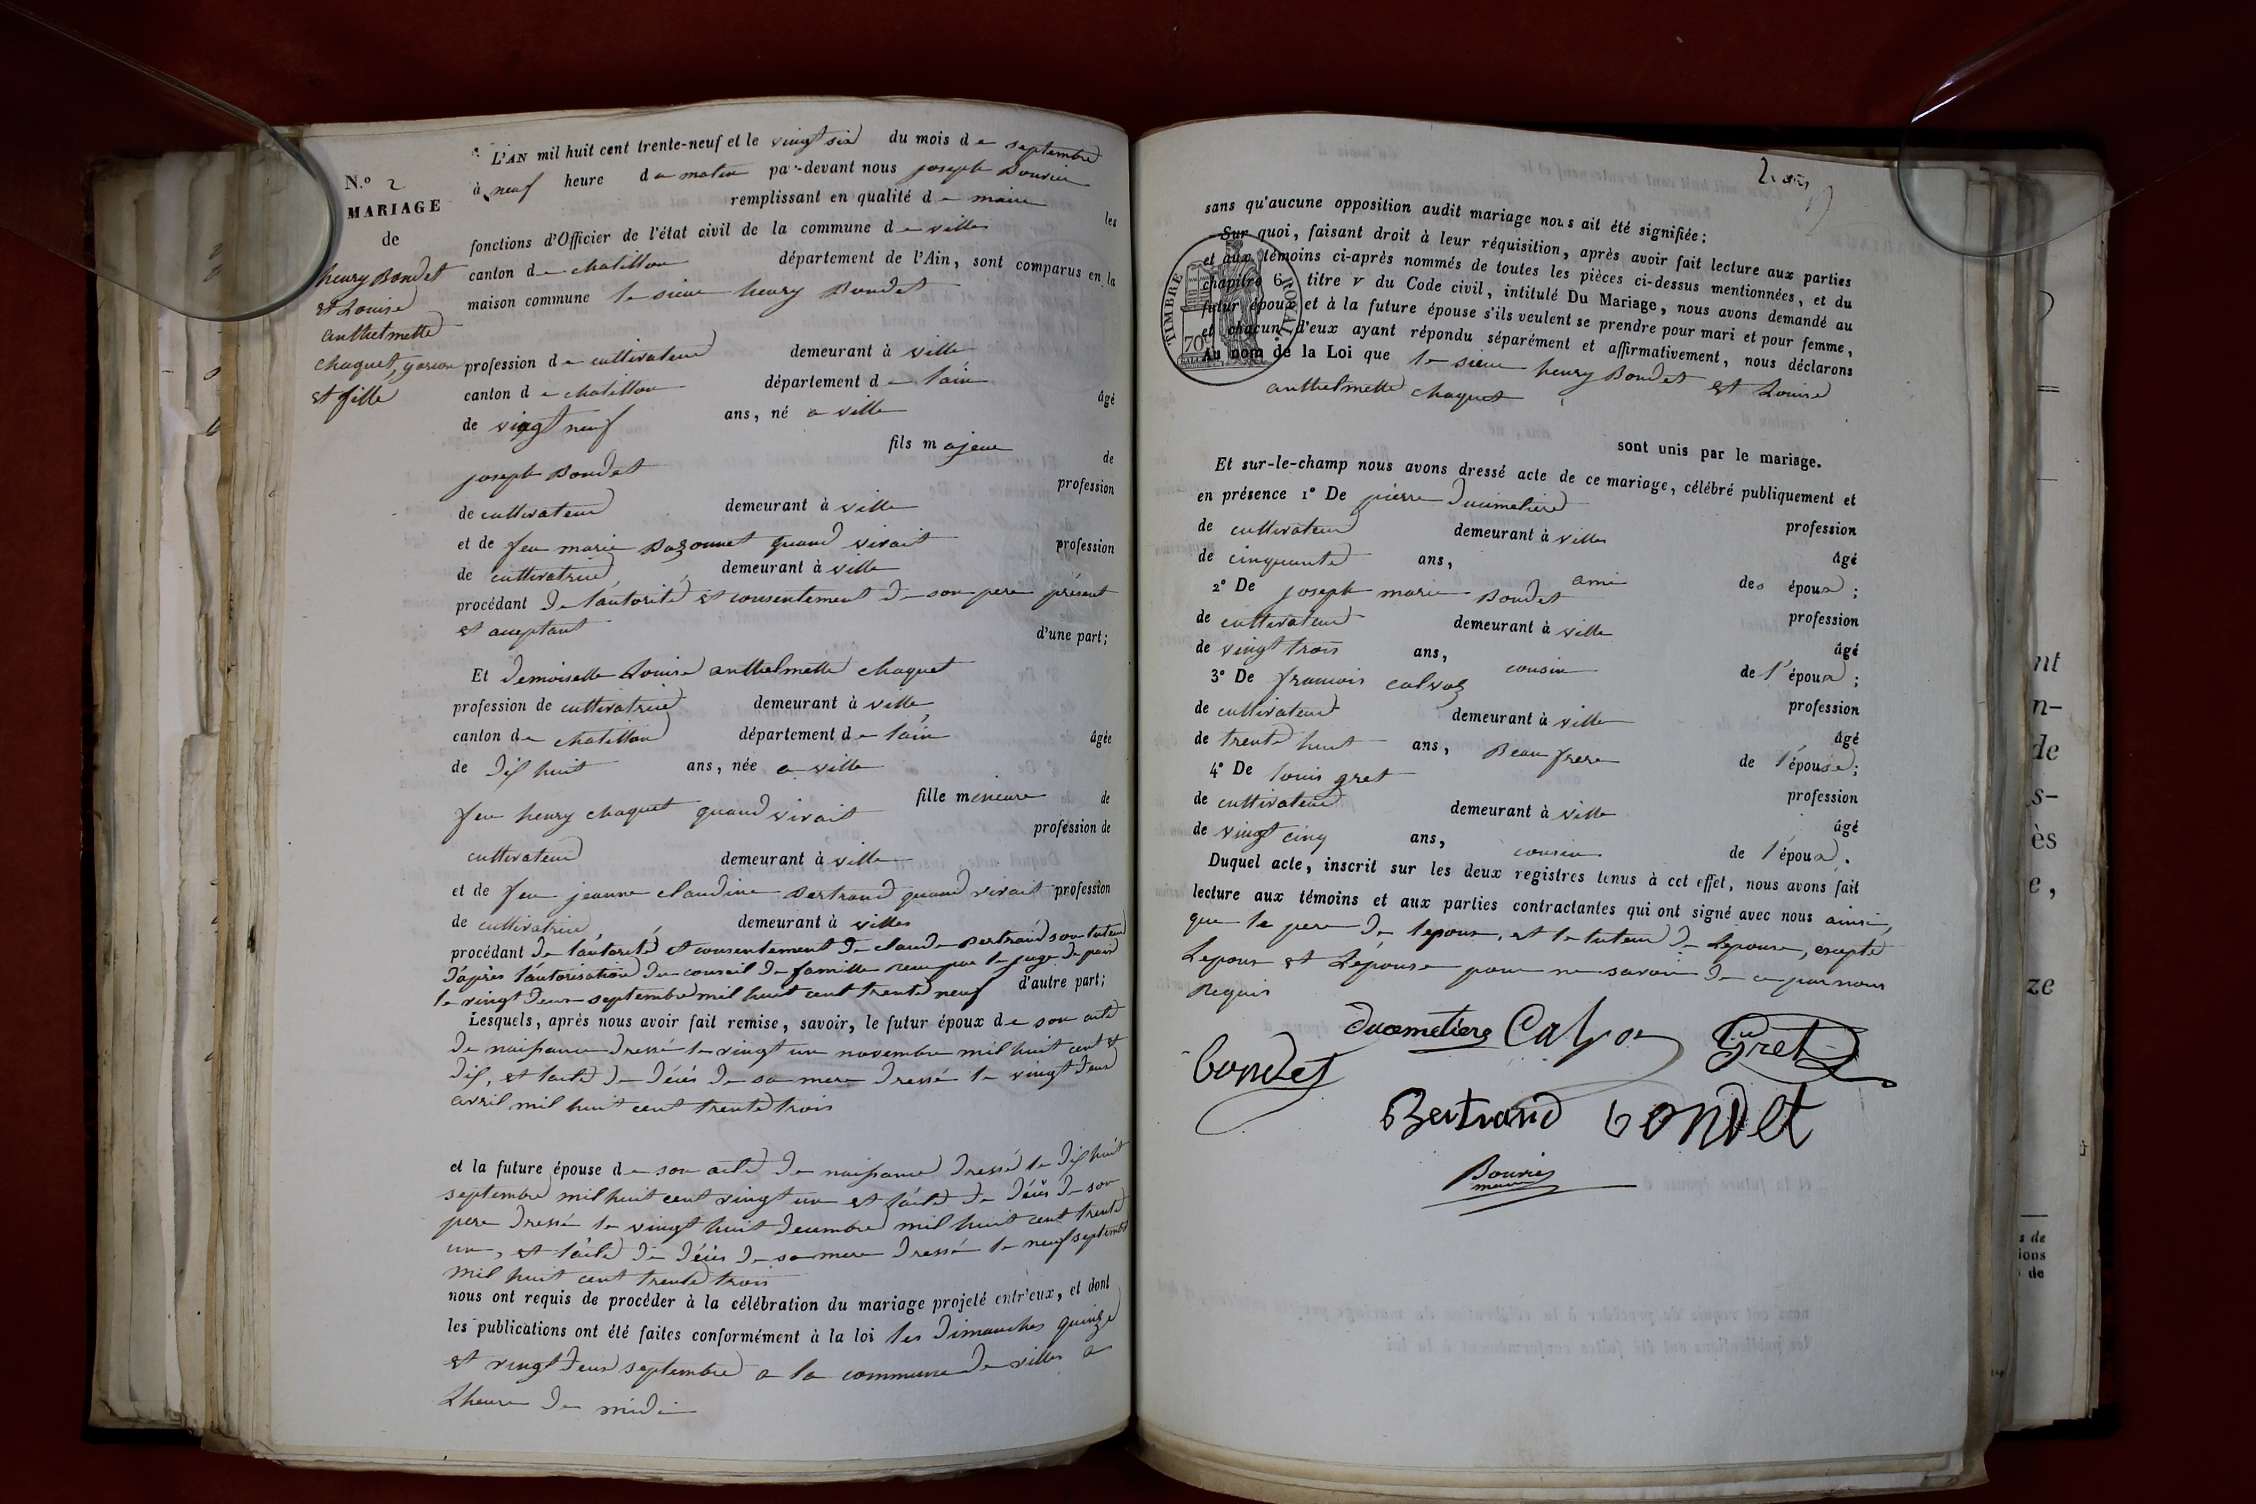 N.° 2
MARIAGE
de
henry Bondet
et Louise
anthelmette
chaquet, garcon
et fille
L'AN mil huit cent trente-neuf et le vingt six du mois de septembre
à neuf heure du matin par-devant nous joseph Bouvier
remplissant en qualité de maire les
fonctions d'Officier de l'état civil de la commune de villes
canton de chatillon département de l'Ain, sont comparus en la
maison commune le sieur henry Bondet
profession de cultivateur demeurant à ville
canton de chatillon département de lain âgé
de vingt neuf ans, né a ville
fils majeur de
joseph Bondet profession
de cultivateur demeurant à ville
et de feu marie Bozonnet quand vivait profession
de cultivatrice demeurant à ville
procédant de l'autorité et consentement de son pere présent
et acceptant d'une part;
Et demoiselle Louise anthelmette chaquet
profession de cultivatrice demeurant à ville
canton de chatillon département de l'ain âgée
de dix huit ans, née a ville
fille mineure de
feu henry chaquet quand vivait profession de
cultivateur demeurant à ville
et de feu jeanne claudine Bertrand quand vivait profession
de cultivatrice demeurant à villes
procédant de l'autorité et consentement de claude Bertrand son tuteur
d'après l'autorisation du conseil de famille recu par le juge de paix
le vingt deux septembre mil huit cent trente neuf d'autre part;
Lesquels, après nous avoir fait remise, savoir, le futur époux de son acte
de naissance dressé le vingt un novembre mil huit cent et
dix, et l'acte de décès de sa mere dressé le vingt deux
avril mil huit cent trente trois
et la future épouse de son acte de naissance dressé le dix huit
septembre mil huit cent vingt un et l'acte de décès de son
pere dressé le vingt huit decembre mil huit cent trente
un, et l'acte de décès de sa mere dressé le neuf septembre
mil huit cent trente trois
nous ont requis de procéder à la célébration du mariage projeté entr'eux, et dont
les publications ont été faites conformément à la loi les dimanches quinze
et vingt deux septembre a la commune de villes a
Lheure de midi
sans qu'aucune opposition audit mariage nous ait été signifiée;
Sur quoi, faisant droit à leur réquisition, après avoir fait lecture aux parties
et aux témoins ci-après nommés de toutes les pièces ci-dessus mentionnées, et du
chapitre 6, titre v du Code civil, intitulé Du Mariage, nous avons demandé au
futur époux et à la future épouse s'ils veulent se prendre pour mari et pour femme,
et chacun d'eux ayant répondu séparément et affirmativement, nous déclarons
Au nom de la Loi que le sieur henry Bondet et Louise
anthelmette chaquet
TIMBRE ROYAL.
70c
sont unis par le mariage.
Et sur-le-champ nous avons dressé acte de ce mariage, célébré publiquement et
en présence 1° De pierre Ducimetiere profession
de cultivateur demeurant à villes âgé
de cinquante ans, ami des époux;
2° De joseph marie Bondet profession
de cultivateur demeurant à ville âgé
de vingt trois ans, cousin de l'époux;
3° De francois calvoz profession
de cultivateur demeurant à ville âgé
de trente huit ans, Beau frere de l'épouse;
4° De louis gret profession
de cultivateur demeurant à ville âgé
de vingt cinq ans, cousin de l'époux.
Duquel acte, inscrit sur les deux registres tenus à cet effet, nous avons fait
lecture aux témoins et aux parties contractantes qui ont signé avec nous ainsi
que le pere de lepoux, et le tuteur de Lepouse, excepté
Lepoux et Lépouse pour ne savoir de ce par nous
Requis
Ducimetiere Calvoz Gret
bondet
Bertrand bondet
Bouvier
maire